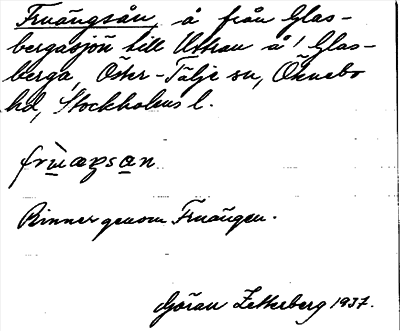 Fruängsån, å från Glas-
bergasjön till Uttran å, Glas-
berga, Öster-Tälje sn, Öknebo
hd, Stockholms l.
frùæŋsan
Rinner genom Fruängen.
Göran Zetterberg 1937.